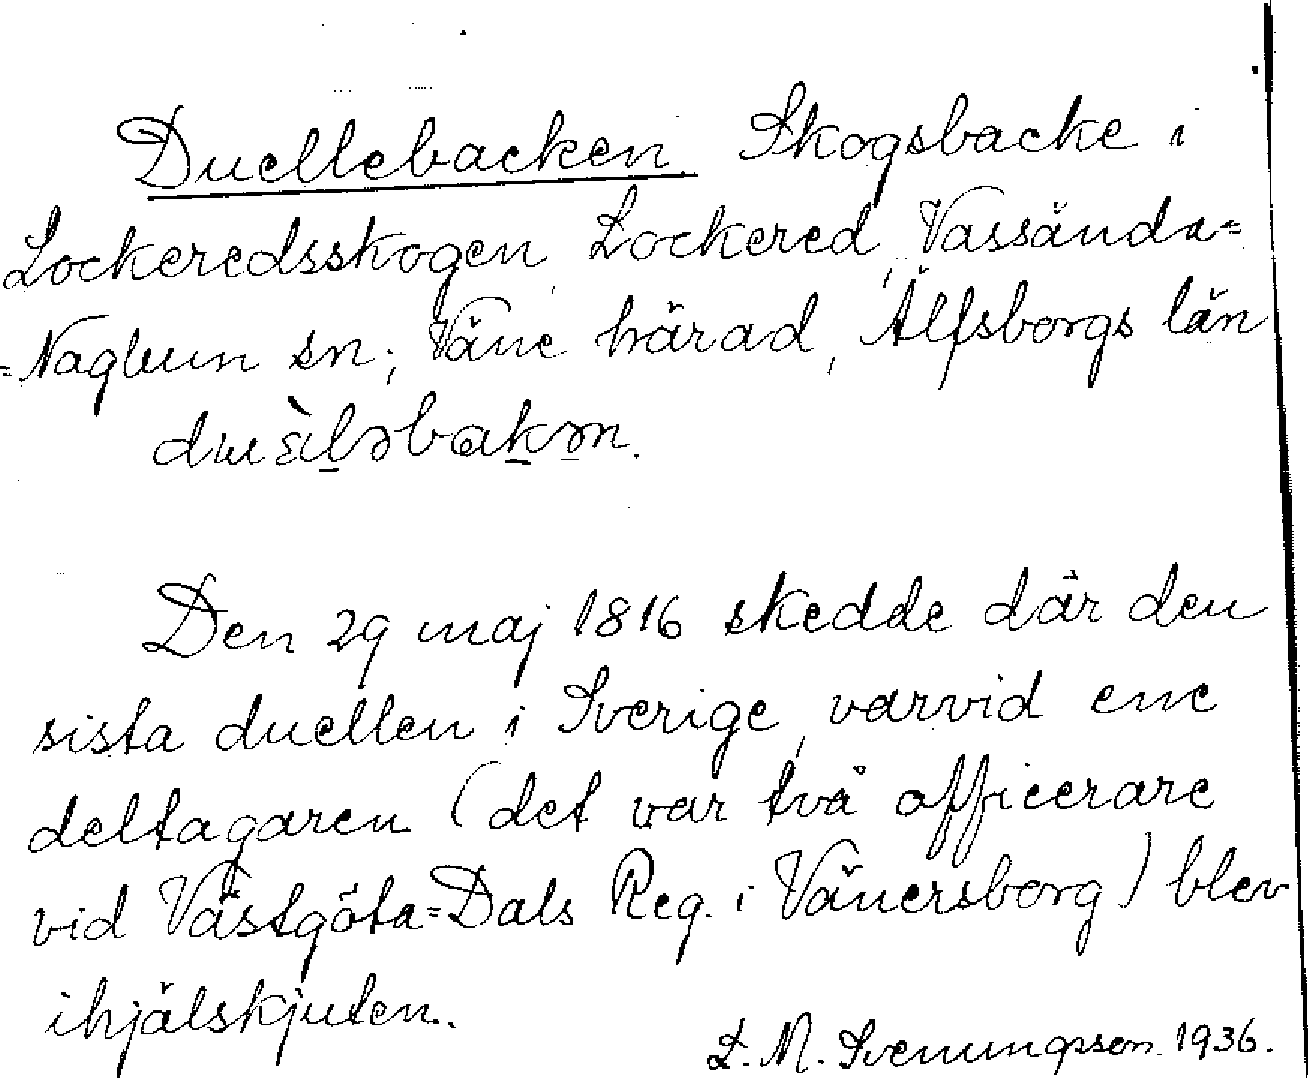 Duellebacken. Skogsbacke i
Lockeredsskogen, Lockered, Vassända=
=Naglum sn; Väne härad, Älfsborgs län
Den 29 maj 1816 skedde där den
sista duellen i Sverige, varvid ene
deltagaren (det var två officerare
vid Västgöta=Dals Reg. i Vänersborg) blev
ihjälskjuten.
L. M. Svenungsson. 1936.